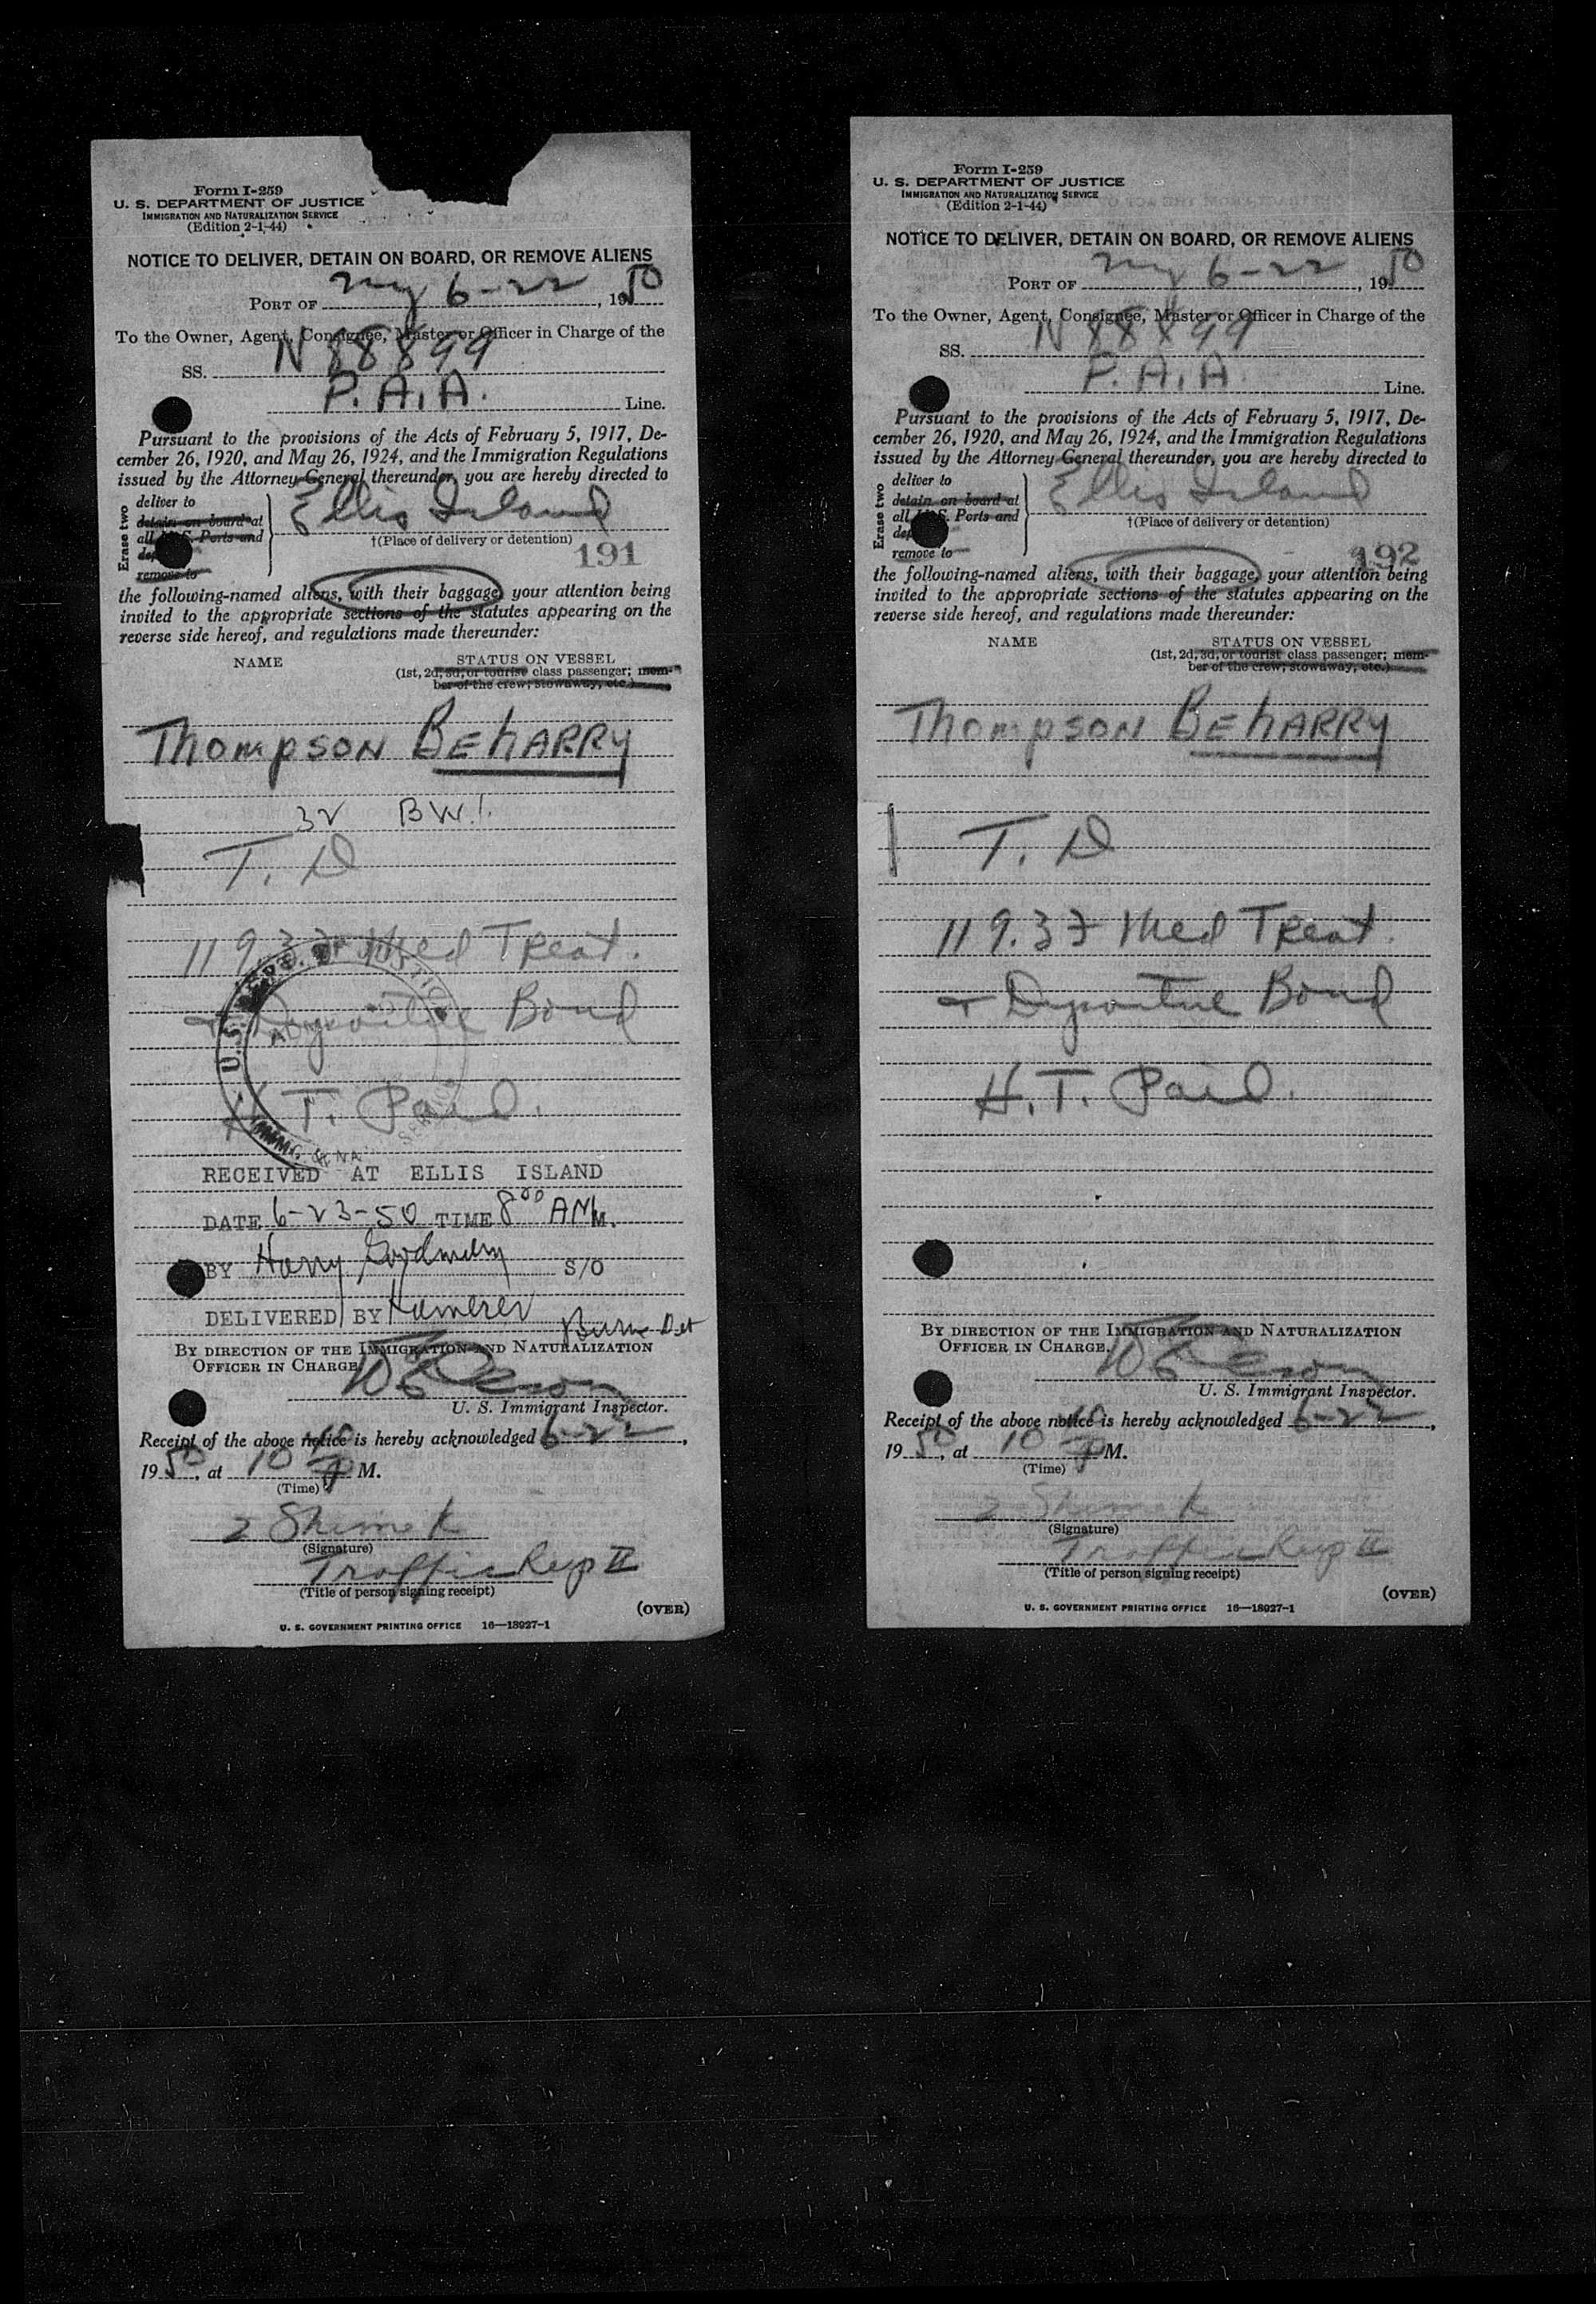 Form I-259
U. S. DEPARTMENT OF JUSTICE
IMMIGRATION AND NATURALIZATION SERVICE
(Edition 2-1-44)
NOTICE TO DELIVER, DETAIN ON BOARD, OR REMOVE ALIENS
PORT OF NY 6-22, 1950
To the Owner, Agent, Consignee, Master or Officer in Charge of the
SS. N 88899
P.A.A. Line.
Pursuant to the provisions of the Acts of February 5, 1917, De-
cember 26, 1920, and May 26, 1924, and the Immigration Regulations
issued by the Attorney General thereunder, you are hereby directed to
Erase two
deliver to
detain on board at
all U.S. Ports and
remove to
Ellis Island
†(Place of delivery or detention)
191
the following-named aliens, with their baggage, your attention being
invited to the appropriate sections of the statutes appearing on the
reverse side hereof, and regulations made thereunder:
NAME
STATUS ON VESSEL
(1st, 2d, 3d, or tourist class passenger; mem-
ber of the crew; stowaway, etc.)
Thompson BEHARRY
32 B W.I.
T. D
119.37 Med Treat.
+ Departure Bond
H. T. Paid.
RECEIVED AT ELLIS ISLAND
DATE 6-23-50 TIME 8 00 AM M.
BY Harry S/O
DELIVERED BY
BY DIRECTION OF THE IMMIGRATION AND NATURALIZATION
OFFICER IN CHARGE,
U. S. Immigrant Inspector.
Receipt of the above notice is hereby acknowledged 6-22,
1950, at 10 P M.
(Time)
Shimek
(Signature)
Traffic Rep II
(Title of person signing receipt)
(OVER)
U. S. GOVERNMENT PRINTING OFFICE 16—18927-1
Form I-259
U. S. DEPARTMENT OF JUSTICE
IMMIGRATION AND NATURALIZATION SERVICE
(Edition 2-1-44)
NOTICE TO DELIVER, DETAIN ON BOARD, OR REMOVE ALIENS
PORT OF NY 6-22, 1950
To the Owner, Agent, Consignee, Master or Officer in Charge of the
SS. N 88899
P.A.A. Line.
Pursuant to the provisions of the Acts of February 5, 1917, De-
cember 26, 1920, and May 26, 1924, and the Immigration Regulations
issued by the Attorney General thereunder, you are hereby directed to
Erase two
deliver to
detain on board at
all U.S. Ports and
remove to
Ellis Island
†(Place of delivery or detention)
192
the following-named aliens, with their baggage, your attention being
invited to the appropriate sections of the statutes appearing on the
reverse side hereof, and regulations made thereunder:
NAME
STATUS ON VESSEL
(1st, 2d, 3d, or tourist class passenger; mem-
ber of the crew; stowaway, etc.)
Thompson BEHARRY
T. D
119.37 Med Treat.
+ Departure Bond
H. T. Paid.
BY DIRECTION OF THE IMMIGRATION AND NATURALIZATION
OFFICER IN CHARGE,
U. S. Immigrant Inspector.
Receipt of the above notice is hereby acknowledged 6-22,
1950, at 10 P M.
(Time)
Shimek
(Signature)
Traffic Rep II
(Title of person signing receipt)
(OVER)
U. S. GOVERNMENT PRINTING OFFICE 16—18927-1